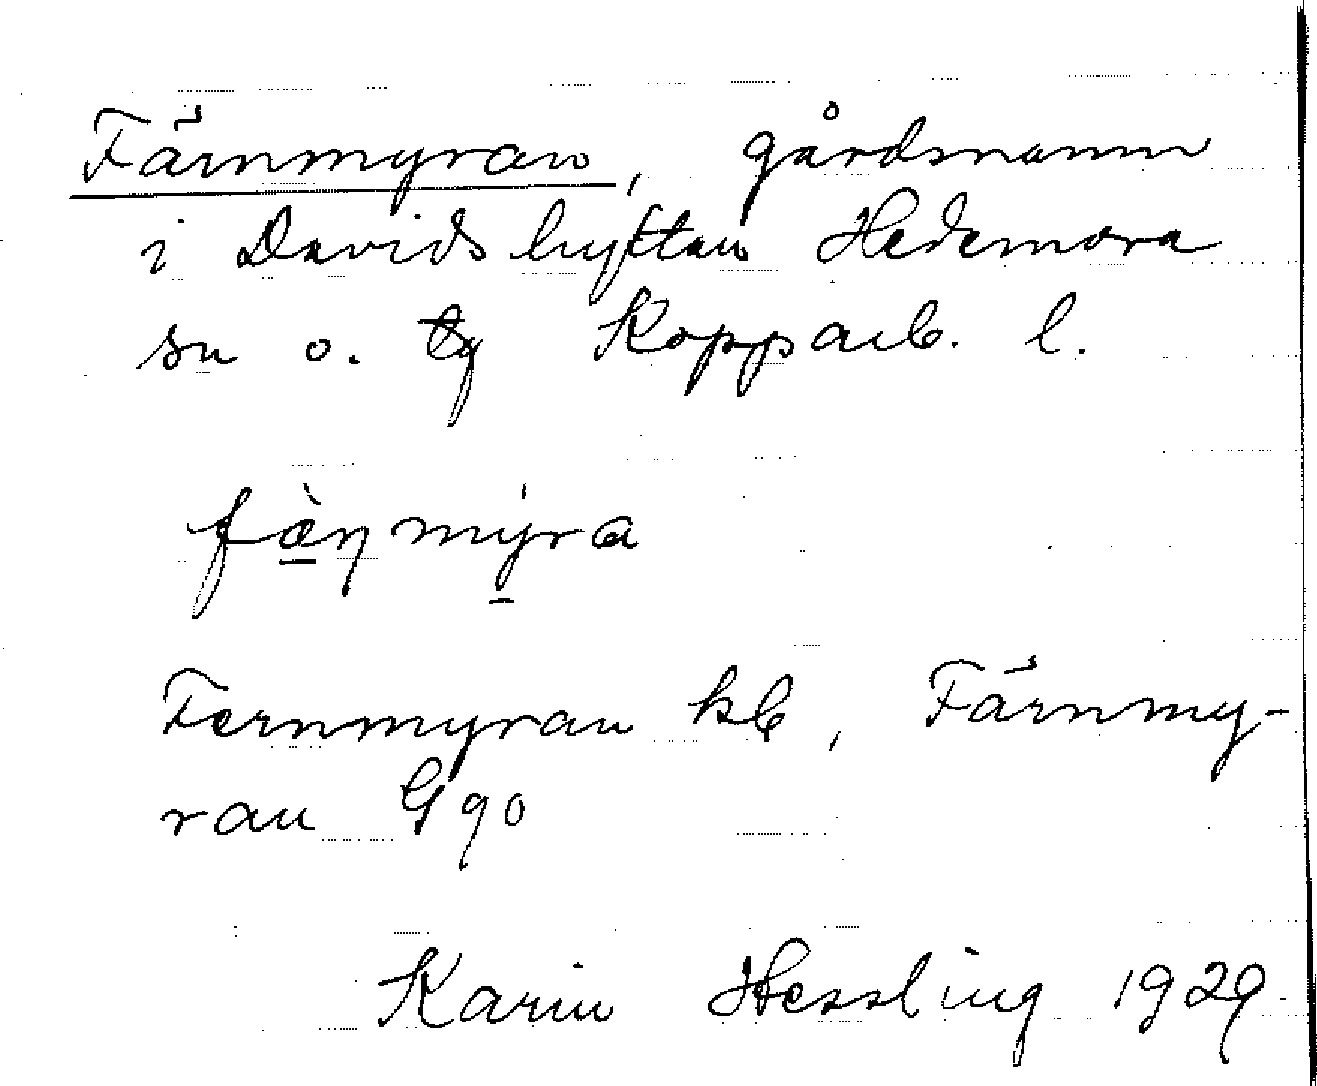 Färnmyran, gårdsnamn
i Davidshyttan Hedemora
sn o. tg Kopparb. l.
fæ̀ṇmýra
Fernmyran kb, Färnmy-
ran G 90
Karin Hessling 1929